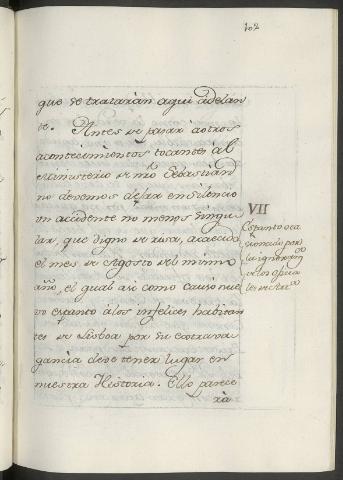 102
que se trataràn aqui adelan
te. Antes de pasar à otros
acontecimientos tocantes àl
Ministerio de nr̃o Sebastian
no devemos dejar en silencio
vn accidente no menos singu
lar, que digno de risa, acaecido
el mes de Agosto del mismo
año, el qual asi como causò nue
vo espanto à los infelices habitan
tes de Lisboa por su extrava
gancia deve tener lugar en
nuestra Historia. Ello parece
rà
VII
Espanto oca
sionado por
la ignoran
de un oficia